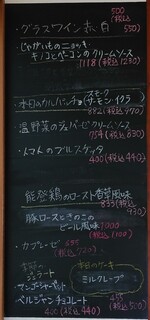 500
・グラスワイン 赤・白 (税込 550)
じゃがいものニョッキ
キノコとベーコンのクリームソース
1118 (税込 1230)
スモーク
本日のカルパッチョ (サーモン・イクラ)
882 (税込 970)
温野菜のジェノバーゼクリームソース
754 (税込 830)
・トマトのブルスケッタ
400 (税込 440)
能登鶏のロースト香草風味
845 (税込 930)
豚ロースときのこの
ビール風味 1000
(税込 1100)
・カプレーゼ
ジェラート
本日のケーキ
マンゴーシャーベット
ミルクレープ
ベルジャンチョコレート
455
(税込 500)
400 (税込 440)